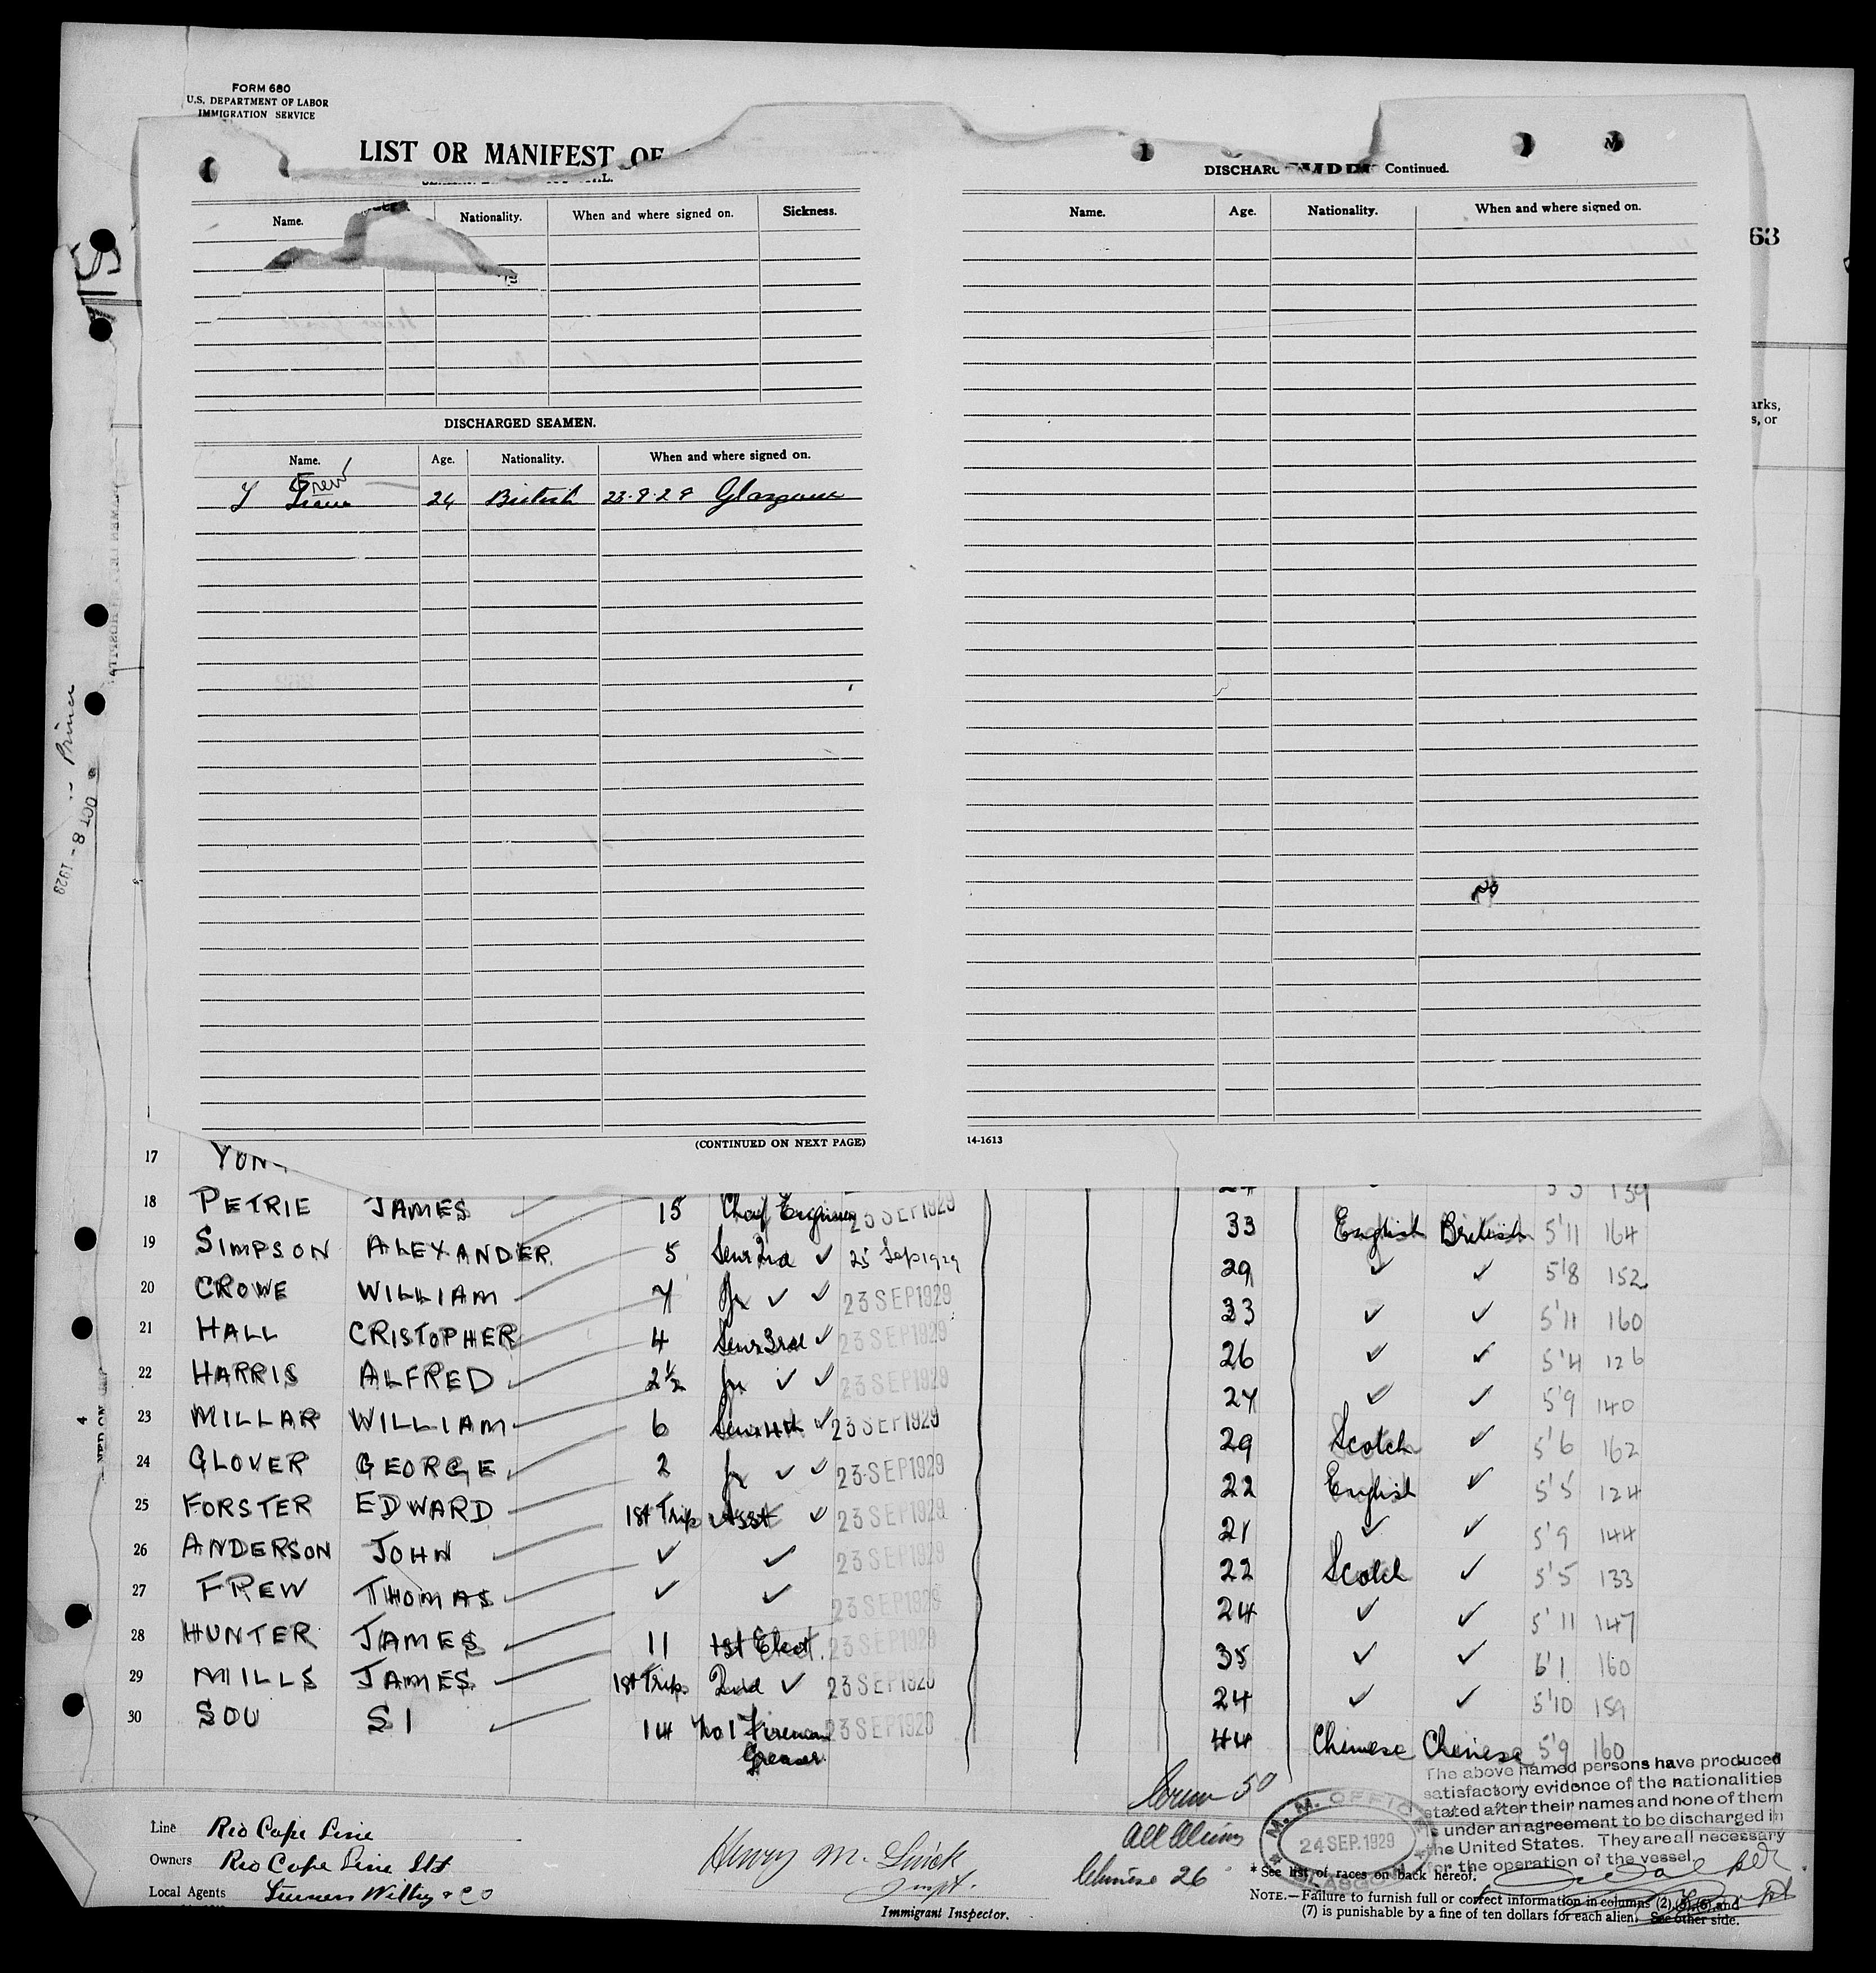 FORM 680
U.S. DEPARTMENT OF LABOR
IMMIGRATION SERVICE
LIST OR MANIFEST OF
DISCHARG Continued.
63
Name. Nationality. When and where signed on. Sickness.
Name. Age. Nationality. When and where signed on.
arks,
s, or
DISCHARGED SEAMEN.
Name. Age. Nationality. When and where signed on.
Frew
T 24 British 23·9·29 Glasgow
Prince
OCT 8 - 1929
(CONTINUED ON NEXT PAGE)
14-1613
17 YON
139
18 PETRIE JAMES 15 Chief Engineer 23 SEP 1929 33 English British 5'11 164
19 SIMPSON ALEXANDER. 5 Senr 2nd ✓ 25 Sep 1929 29 ✓ ✓ 5'8 152
20 CROWE WILLIAM 7 Jr ✓ ✓ 23 SEP 1929 33 ✓ ✓ 5'11 160
21 HALL CRISTOPHER 4 Senr 3rd ✓ 23 SEP 1929 26 ✓ ✓ 5'4 126
22 HARRIS ALFRED 2½ Jr ✓ ✓ 23 SEP 1929 27 ✓ ✓ 5'9 140
23 MILLAR WILLIAM 6 Senr 4th ✓ 23 SEP 1929 29 Scotch ✓ 5'6 162
24 GLOVER GEORGE 2 Jr ✓ ✓ 23 SEP 1929 22 English ✓ 5'5 124
25 FORSTER EDWARD 1st Trip Asst ✓ 23 SEP 1929 21 ✓ ✓ 5'9 144
26 ANDERSON JOHN ✓ ✓ 23 SEP 1929 22 Scotch ✓ 5'5 133
27 FREW THOMAS ✓ ✓ 23 SEP 1929 24 ✓ ✓ 5'11 147
28 HUNTER JAMES 11 1st Elect. 23 SEP 1929 35 ✓ ✓ 6'1 160
29 MILLS JAMES 1st Trip 2nd ✓ 23 SEP 1929 24 ✓ ✓ 5'10 159
30 SOU SI 14 No 1 Fireman 23 SEP 1929 44 Chinese Chinese 5'9 160
Greaser
The above named persons have produced
satisfactory evidence of the nationalities
stated after their names and none of them
is under an agreement to be discharged in
the United States. They are all necessary
for the operation of the vessel.
Crew 50
All Aliens
Chinese 26
M. M. OFFICE
24 SEP. 1929
GLASGOW
Line Rio Cape Line
Owners Rio Cape Line Ltd
Local Agents Furness Withy & Co
Henry M. Quick
Inspt.
Immigrant Inspector.
* See list of races on back hereof.
NOTE.—Failure to furnish full or correct information in columns (2), (5), (6), and
(7) is punishable by a fine of ten dollars for each alien. See other side.